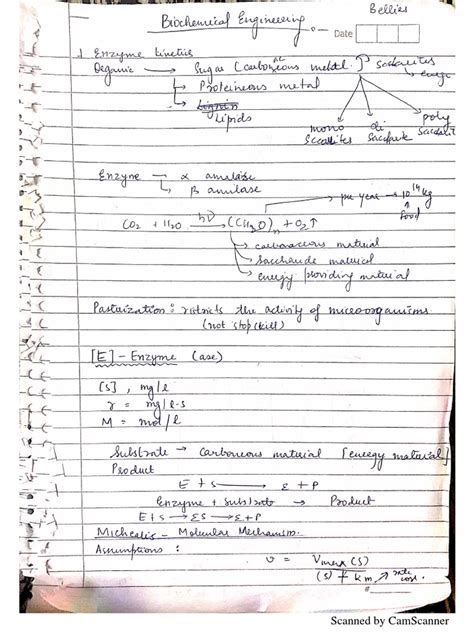 Bellies
Biochemical Engineering
Date
1. Enzyme kinetics
Organic → Sugar (carboneous metal) Saccalites
→ Proteineous metal
→ Lignin
Lipids
mono di poly
Enzyme → α amilase
→ β amilase
per year → 10^14 kg
food
CO2 + H2O hν → (CH2O)n + O2↑
→ carbonaceous material
→ saccharide material
→ energy providing material
Pasturization : ristricts the activity of microorganisms
(not stop/kill)
[E] - Enzyme (ase)
[S] , mg/l
r = mg/l-s
M = mol/l
Substrate → carboneous material [energy material]
Product
E + S → E + P
Enzyme + Substrate → Product
E+S → ES → E+P
Michealis - Molecular Mechanism.
Assumptions :
v = Vmax (S)
(S) + km rate const.
Scanned by CamScanner